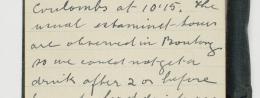 Coulombs at 10.15. The
usual estaminet-hours
are observed in Boulong
so we could not get a
drink after 2 or before